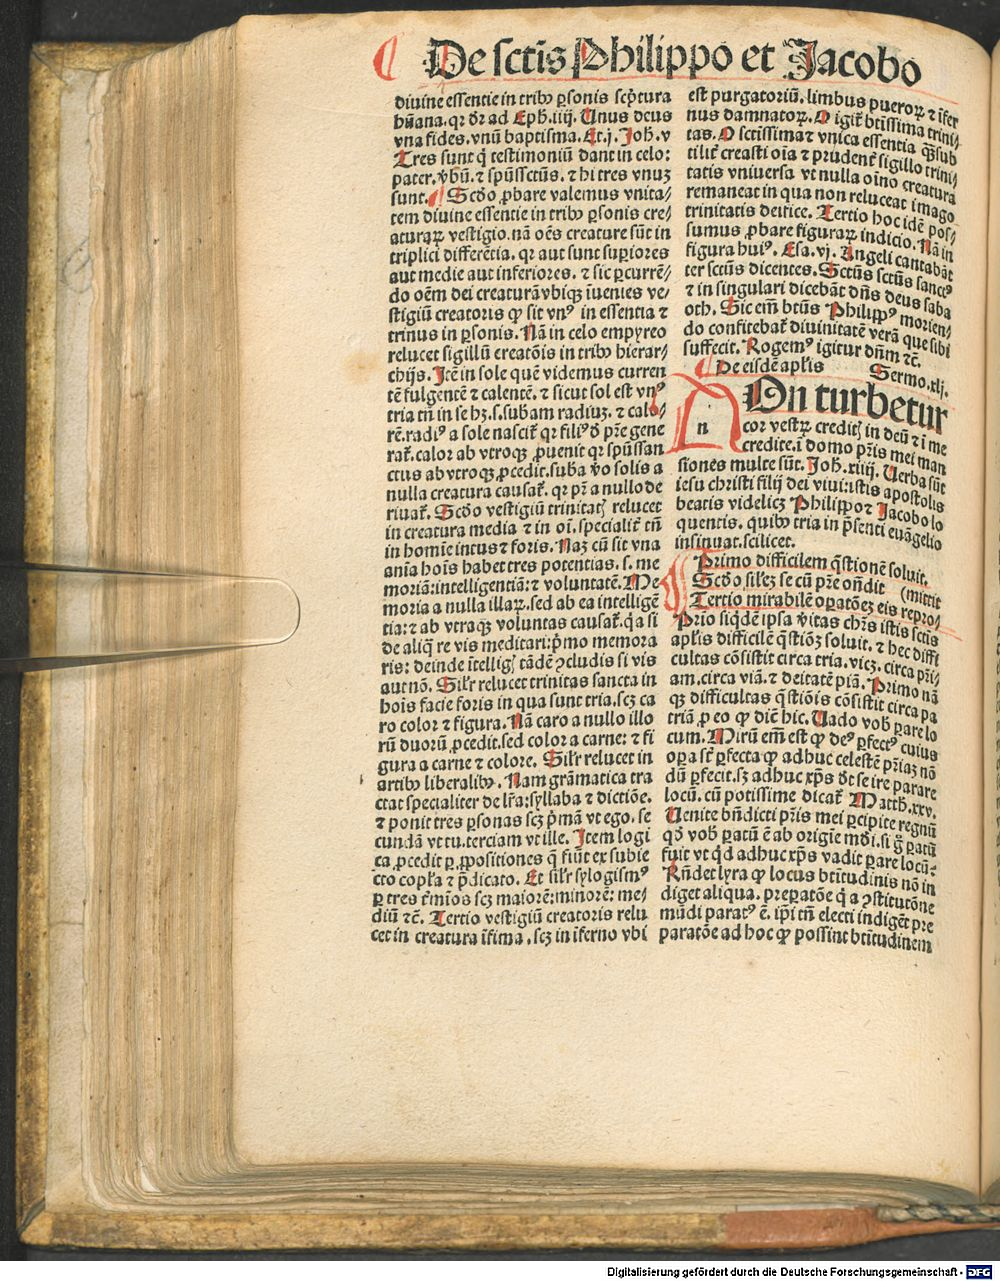 De sctis Philippo et Jacobo
diuine essentie in tribꝰ ꝑsonis scṗtura
hūana. qꝛ dꝛ ad Eph. iiij. Unus deus
vna fides. vnū baptisma. Et. j. Joh. v
Tres sunt q̄ testimoniū dant in celo:
pater. v̓bū. ⁊ spūssctūs. ⁊ hi tres vnuꝫ
sunt. Scd̓o ꝓbare valemus vnita⸗
tem diuine essentie in tribꝰ ꝑsonis cre⸗
aturaꝝ vestigio. nā oēs creature sūt in
triplici differētia. qꝛ aut sunt suꝑiores
aut medie aut inferiores. ⁊ sic ꝑcurrē⸗
do oēm dei creaturā vbiqꝫ īuenies ve⸗
stigiū creatoris ꝙ sit vnꝰ in essentia ⁊
trinus in ꝑsonis. Nā in celo empyreo
relucet sigillū creatōis in tribꝰ hierar⸗
chijs. Itē in sole quē videmus curren
tē fulgentē ⁊ calentē. ⁊ sicut sol est vnꝰ
tria tn̄ in se hꝫ. s. subam radiuꝫ. ⁊ calo⸗
rē. radiꝰ a sole nascit᷑ qꝛ filiꝰ d̓ pr̄e gene
rat᷑. calor ab vtroqꝫ ꝓuenit qꝛ spūssan
ctus ab vtroqꝫ ꝓcedit. suba v̓o solis a
nulla creatura causat᷑. qꝛ pr̄ a nullo de
riuat᷑. Scd̓o vestigiū trinitatꝭ relucet
in creatura media ⁊ in oī. specialit᷑ tn̄
in homīe intus ⁊ foris. Naꝫ cū sit vna
anīa hoīs habet tres potentias. s. me
moriā: intelligentiā: ⁊ voluntatē. Me
moria a nulla illaꝝ. sed ab ea intelligē
tia: ⁊ ab vtraqꝫ voluntas causat᷑. q̓a si
de aliq̓ re vis meditari: p̓mo memora
ris: deinde ītelligꝭ tādē ꝯcludis si vis
aut nō. Sil̓r relucet trinitas sancta in
hoīs facie foris in qua sunt tria. scꝫ ca
ro color ⁊ figura. Nā caro a nullo illo
rū duorū ꝓcedit. sed color a carne: ⁊ fi
gura a carne ⁊ colore. Sil̓r relucet in
artibꝰ liberalibꝰ. Nam grāmatica tra
ctat specialiter de lr̄a: syllaba ⁊ dictiōe.
⁊ ponit tres ꝑsonas scꝫ p̓mā vt ego. se
cundā vt tu. terciam vt ille. Item logi
ca ꝓcedit ꝑ ꝓpositiones q̄ fiūt ex subie
cto copl̓a ⁊ p̄dicato. Et sil̓r sylogismꝰ
ꝑ tres t̓mios scꝫ maiorē: minorē: me⸗
diū ⁊c̄. Tertio vestigiū creatoris relu
cet in creatura īfima. scꝫ in īferno vbi
est purgatoriū. limbus pueroꝝ ⁊ īfer
nus damnatoꝝ. O igit᷑ btīssima trini⸗
tas. O sctīssima ⁊ vnica essentia q̄ sub
tilit᷑ creasti oīa ⁊ prudent᷑ sigillo trini⸗
tatis vniuersa vt nulla oīno creatura
remaneat in qua non reluceat imago
trinitatis deifice. Tertio hoc idē pos⸗
sumus ꝓbare figuraꝝ indicio. Nā in
figura huiꝰ. Esa. vj. Angeli cantabāt
ter sctūs dicentes. Sctūs sctūs sanctꝰ
⁊ in singulari dicebāt dn̄s deus saba
oth. Sic em̄ btūs Philippꝰ morien⸗
do confitebat᷑ diuinitatē verā que sibi
suffecit. Rogemꝰ igitur dn̄m ⁊c̄.
De eisdē apl̓is Sermo. xlj.
n
On turbetur
cor vestꝝ creditꝭ in deū ⁊ i me
credite. ī domo pr̄is mei man
siones multe sūt. Joh. xiiij. Uerba sūt
iesu christi filij dei viui: istis apostolis
beatis videlicꝫ Philippo ⁊ Jacobo lo
quentis. quibꝰ tria in p̄senti euāgelio
insinuat. scilicet.
Primo difficilem q̄stionē soluit.
Scd̓o sil̓eꝫ se cū pr̄e on̄dit (mittit
Tertio mirabilē oꝑatōeꝫ eis repro⸗
Prio siqd̄ē ipsa v̓itas chr̄s istis sctīs
apl̓is difficilē q̄stiōꝫ soluit. ⁊ hec diffi
cultas cōsistit circa tria. vicꝫ. circa pr̄i⸗
am. circa viā. ⁊ deitatē piā. Primo nā
qꝫ difficultas q̄stiōis cōsistit circa pa
triā ꝓ eo ꝙ dic̄ hic. Uado vob̓ parare lo
cum. Mirū em̄ est ꝙ deꝰ ꝑfectꝰ cuius
oꝑa st̄ ꝑfecta ꝙ adhuc celestē pr̄iaꝫ nō
dū ꝑfecit. sꝫ adhuc xp̄s dt̄ se ire parare
locū. cū potissime dicat᷑ Matth. xxv.
Uenite bn̄dicti pr̄is mei ꝑcipite regnū
qd̓ vob̓ ꝑatū ē ab origīe mōi. si g̊ ꝑatū
fuit vt qd̓ adhuc xp̄s vadit ꝑare locū.
Rn̄det lyra ꝙ locus btītudinis nō in
diget aliqua. preꝑatōe q̓a ꝯstitutōne
mūdi paratꝰ ē. ip̄i tn̄ electi indigēt pre
paratōe ad hoc ꝙ possint btītudinem
Digitalisierung gefördert durch die Deutsche Forschungsgemeinschaft - DFG